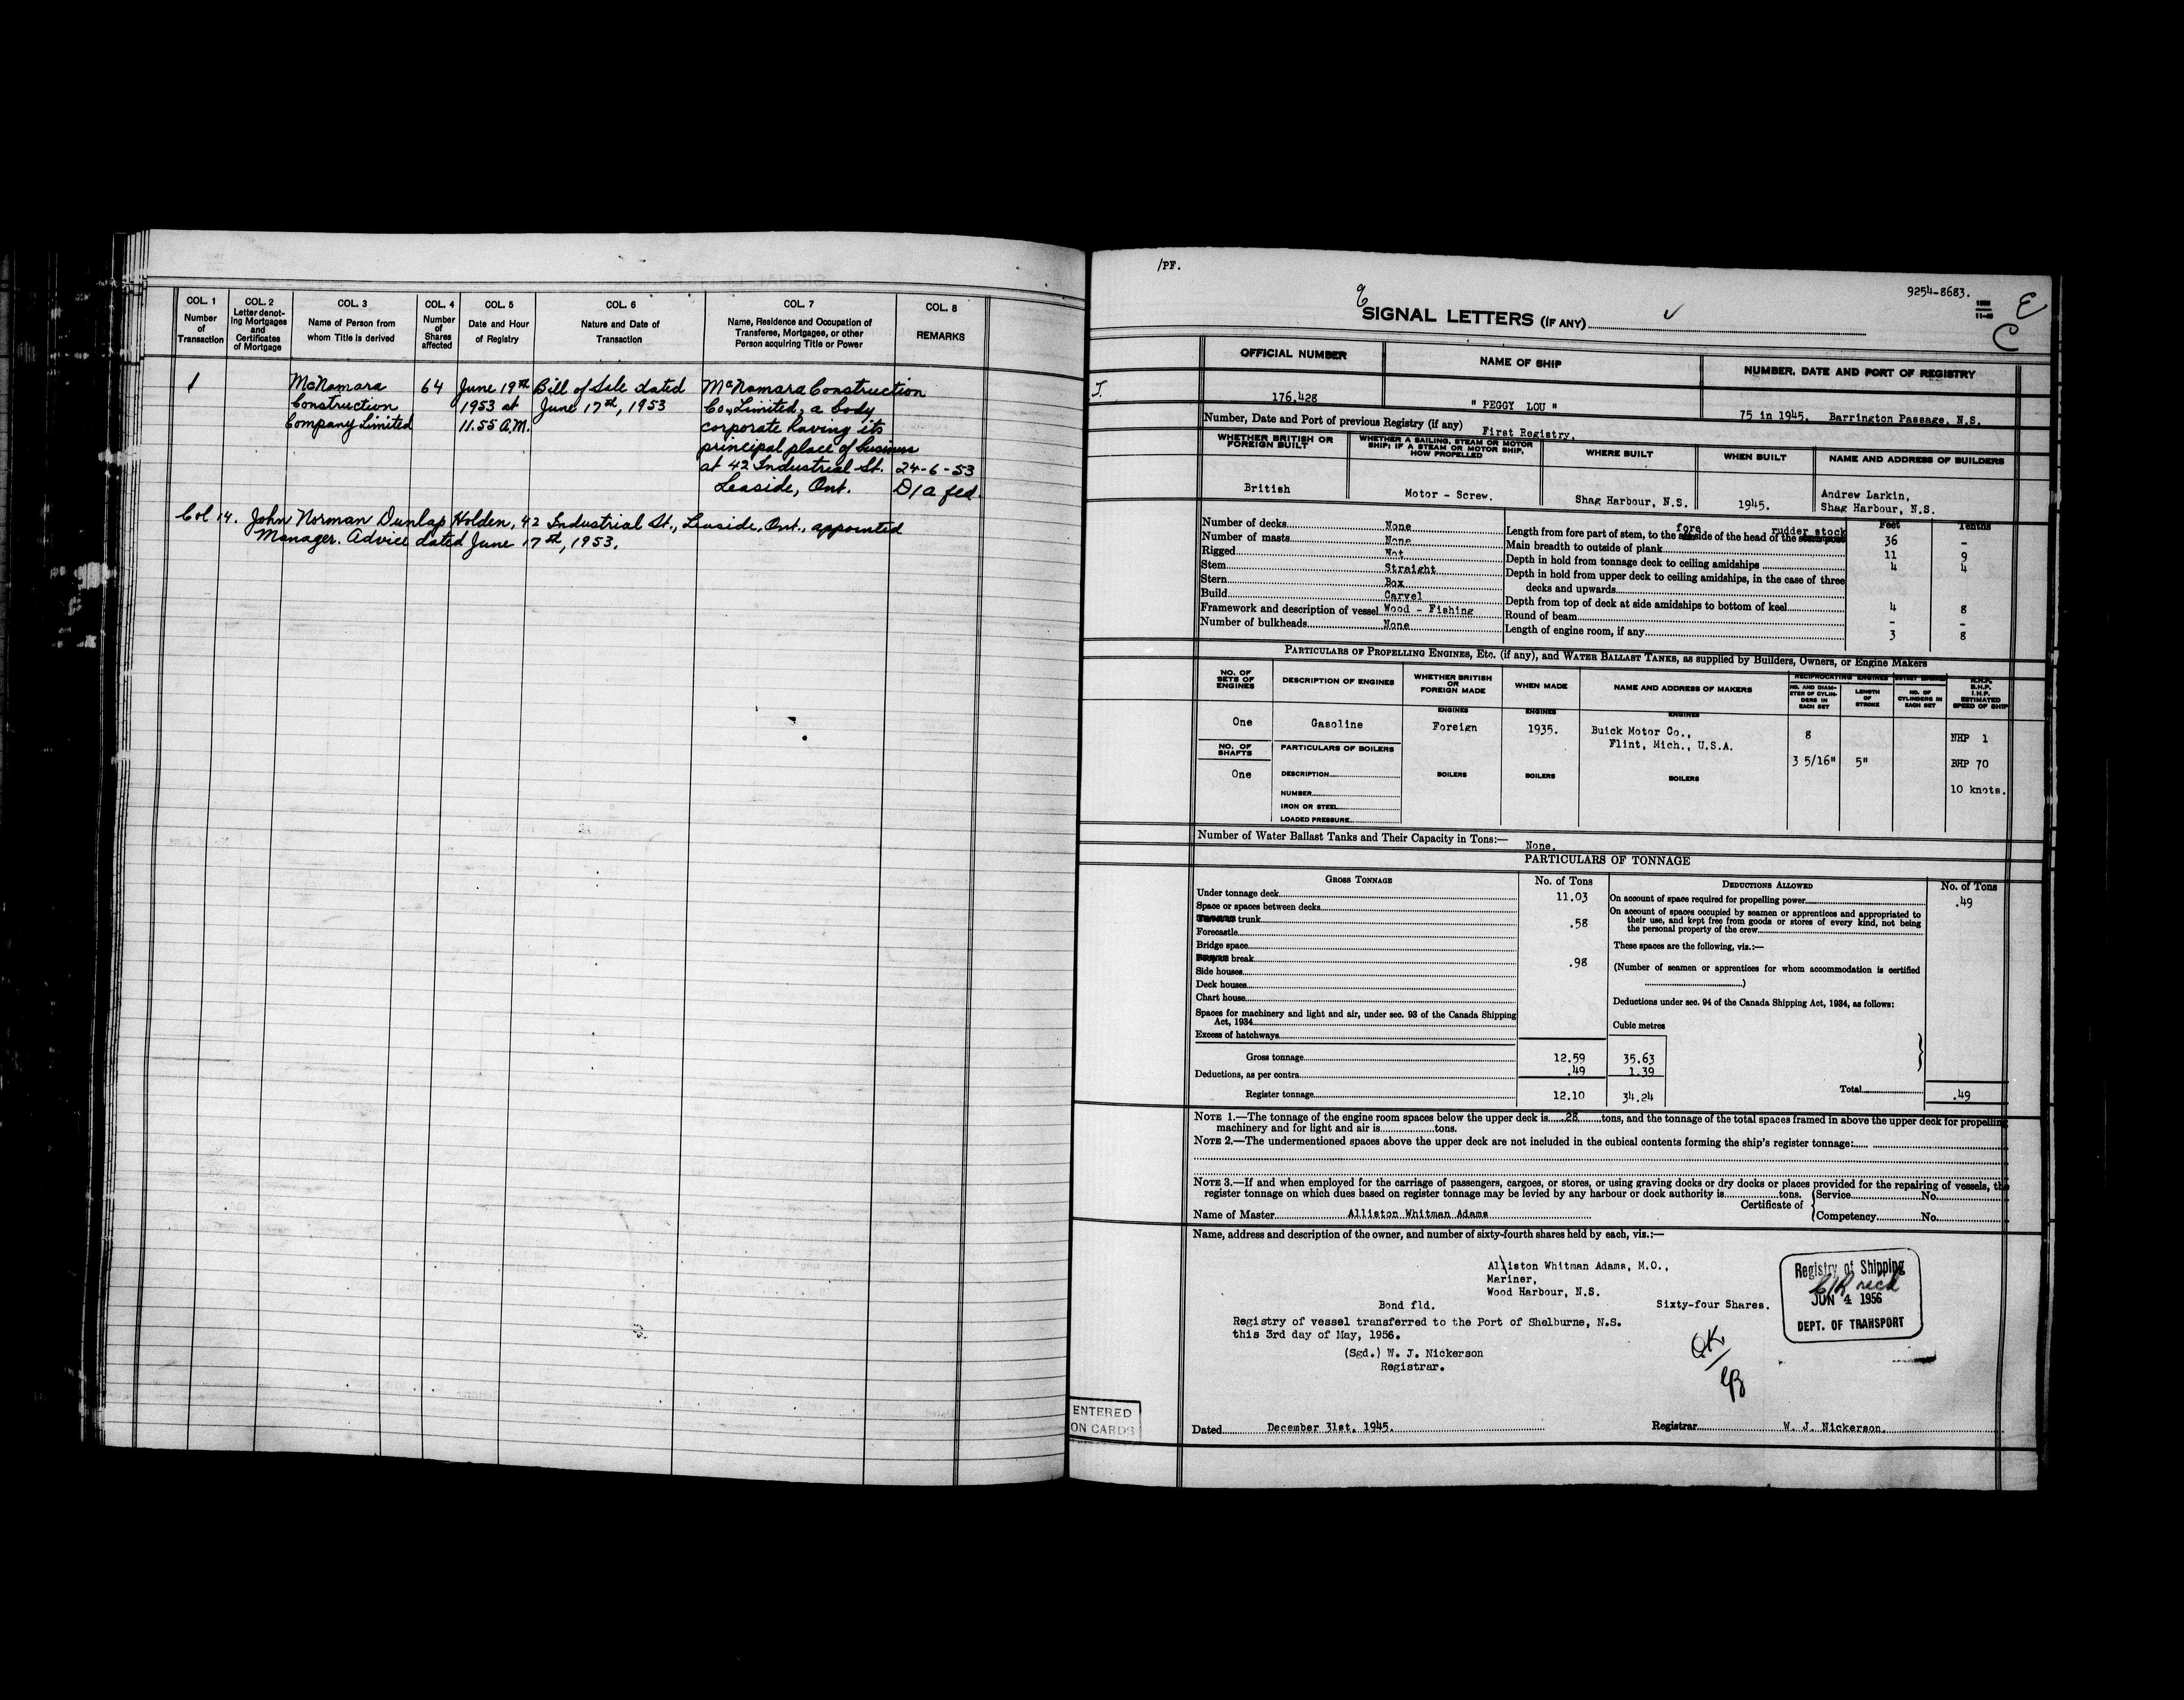 COL. 1 Number of Transaction
COL. 2 Letter denoting Mortgages and Certificates of Mortgage
COL. 3 Name of Person from whom Title is derived
COL. 4 Number of Shares affected
COL. 5 Date and Hour of Registry
COL. 6 Nature and Date of Transaction
COL. 7 Name, Residence and Occupation of Transferee, Mortgagee, or other Person acquiring Title or Power
COL. 8 REMARKS
1 McNamara 64 June 19th Bill of Sale dated McNamara Construction
Construction 1953 at June 17th, 1953 Co., Limited, a body
Company Limited 11.55 A.M. corporate having its
principal place of business
at 42 Industrial St. 24-6-53
Leaside, Ont. D/a fed.
Col 14. John Norman Dunlap Holden, 42 Industrial St., Leaside, Ont., appointed
Manager. Advice dated June 17th, 1953.
/PF.
9254-8683.
E
C
SIGNAL LETTERS (IF ANY)
OFFICIAL NUMBER NAME OF SHIP NUMBER, DATE AND PORT OF REGISTRY
J.
176.428 " PEGGY LOU " 75 in 1945. Barrington Passage, N.S.
Number, Date and Port of previous Registry (if any) First Registry.
WHETHER BRITISH OR FOREIGN BUILT
WHETHER A SAILING, STEAM OR MOTOR SHIP; IF A STEAM OR MOTOR SHIP, HOW PROPELLED
WHERE BUILT WHEN BUILT NAME AND ADDRESS OF BUILDERS
British Motor - Screw. Shag Harbour, N.S. 1945. Andrew Larkin,
Shag Harbour, N.S.
Feet Tenths
Number of decks None
Number of masts None
Rigged Not
Stem Straight
Stern Box
Build Carvel
Framework and description of vessel Wood - Fishing
Number of bulkheads None
Length from fore part of stem, to the fore side of the head of the rudder stock 36 -
Main breadth to outside of plank 11 9
Depth in hold from tonnage deck to ceiling amidships 4 4
Depth in hold from upper deck to ceiling amidships, in the case of three
decks and upwards
Depth from top of deck at side amidships to bottom of keel 4 8
Round of beam - -
Length of engine room, if any 3 8
PARTICULARS OF PROPELLING ENGINES, ETC. (if any), and WATER BALLAST TANKS, as supplied by Builders, Owners, or Engine Makers
NO. OF SETS OF ENGINES
DESCRIPTION OF ENGINES
WHETHER BRITISH OR FOREIGN MADE
WHEN MADE
NAME AND ADDRESS OF MAKERS
RECIPROCATING ENGINES
NO. AND DIAMETER OF CYLINDERS IN EACH SET
LENGTH OF STROKE
NO. OF CYLINDERS IN EACH SET
N.H.P. B.H.P. I.H.P. ESTIMATED SPEED OF SHIP
ENGINES ENGINES ENGINES
One Gasoline Foreign 1935. Buick Motor Co., 8 NHP 1
Flint, Mich., U.S.A.
NO. OF SHAFTS PARTICULARS OF BOILERS 3 5/16" 5" BHP 70
One DESCRIPTION BOILERS BOILERS BOILERS
10 knots.
NUMBER
IRON OR STEEL
LOADED PRESSURE
Number of Water Ballast Tanks and Their Capacity in Tons:— None.
PARTICULARS OF TONNAGE
GROSS TONNAGE No. of Tons DEDUCTIONS ALLOWED No. of Tons
Under tonnage deck 11.03
Space or spaces between decks
trunk .58
Forecastle
Bridge space
break .98
Side houses
Deck houses
Chart house
Spaces for machinery and light and air, under sec. 93 of the Canada Shipping
Act, 1934
Excess of hatchways
Gross tonnage 12.59 35.63
Deductions, as per contra .49 1.39
Register tonnage 12.10 34.24
On account of space required for propelling power .49
On account of spaces occupied by seamen or apprentices and appropriated to
their use, and kept free from goods or stores of every kind, not being
the personal property of the crew
These spaces are the following, viz.:—
(Number of seamen or apprentices for whom accommodation is certified
)
Deductions under sec. 94 of the Canada Shipping Act, 1934, as follows:
Cubic metres
Total .49
NOTE 1.—The tonnage of the engine room spaces below the upper deck is .28 tons, and the tonnage of the total spaces framed in above the upper deck for propelling
machinery and for light and air is tons.
NOTE 2.—The undermentioned spaces above the upper deck are not included in the cubical contents forming the ship's register tonnage:
NOTE 3.—If and when employed for the carriage of passengers, cargoes, or stores, or using graving docks or dry docks or places provided for the repairing of vessels, the
register tonnage on which dues based on register tonnage may be levied by any harbour or dock authority is tons.
Certificate of Service No.
Competency No.
Name of Master Alliston Whitman Adams
Name, address and description of the owner, and number of sixty-fourth shares held by each, viz.:—
Alliston Whitman Adams, M.O.,
Mariner,
Wood Harbour, N.S.
Bond fld. Sixty-four Shares.
Registry of vessel transferred to the Port of Shelburne, N.S.
this 3rd day of May, 1956.
(Sgd.) W. J. Nickerson
Registrar.
Registry of Shipping
JUN 4 1956
DEPT. OF TRANSPORT
OK
ENTERED
ON CARDS
Dated December 31st, 1945. Registrar W. J. Nickerson.